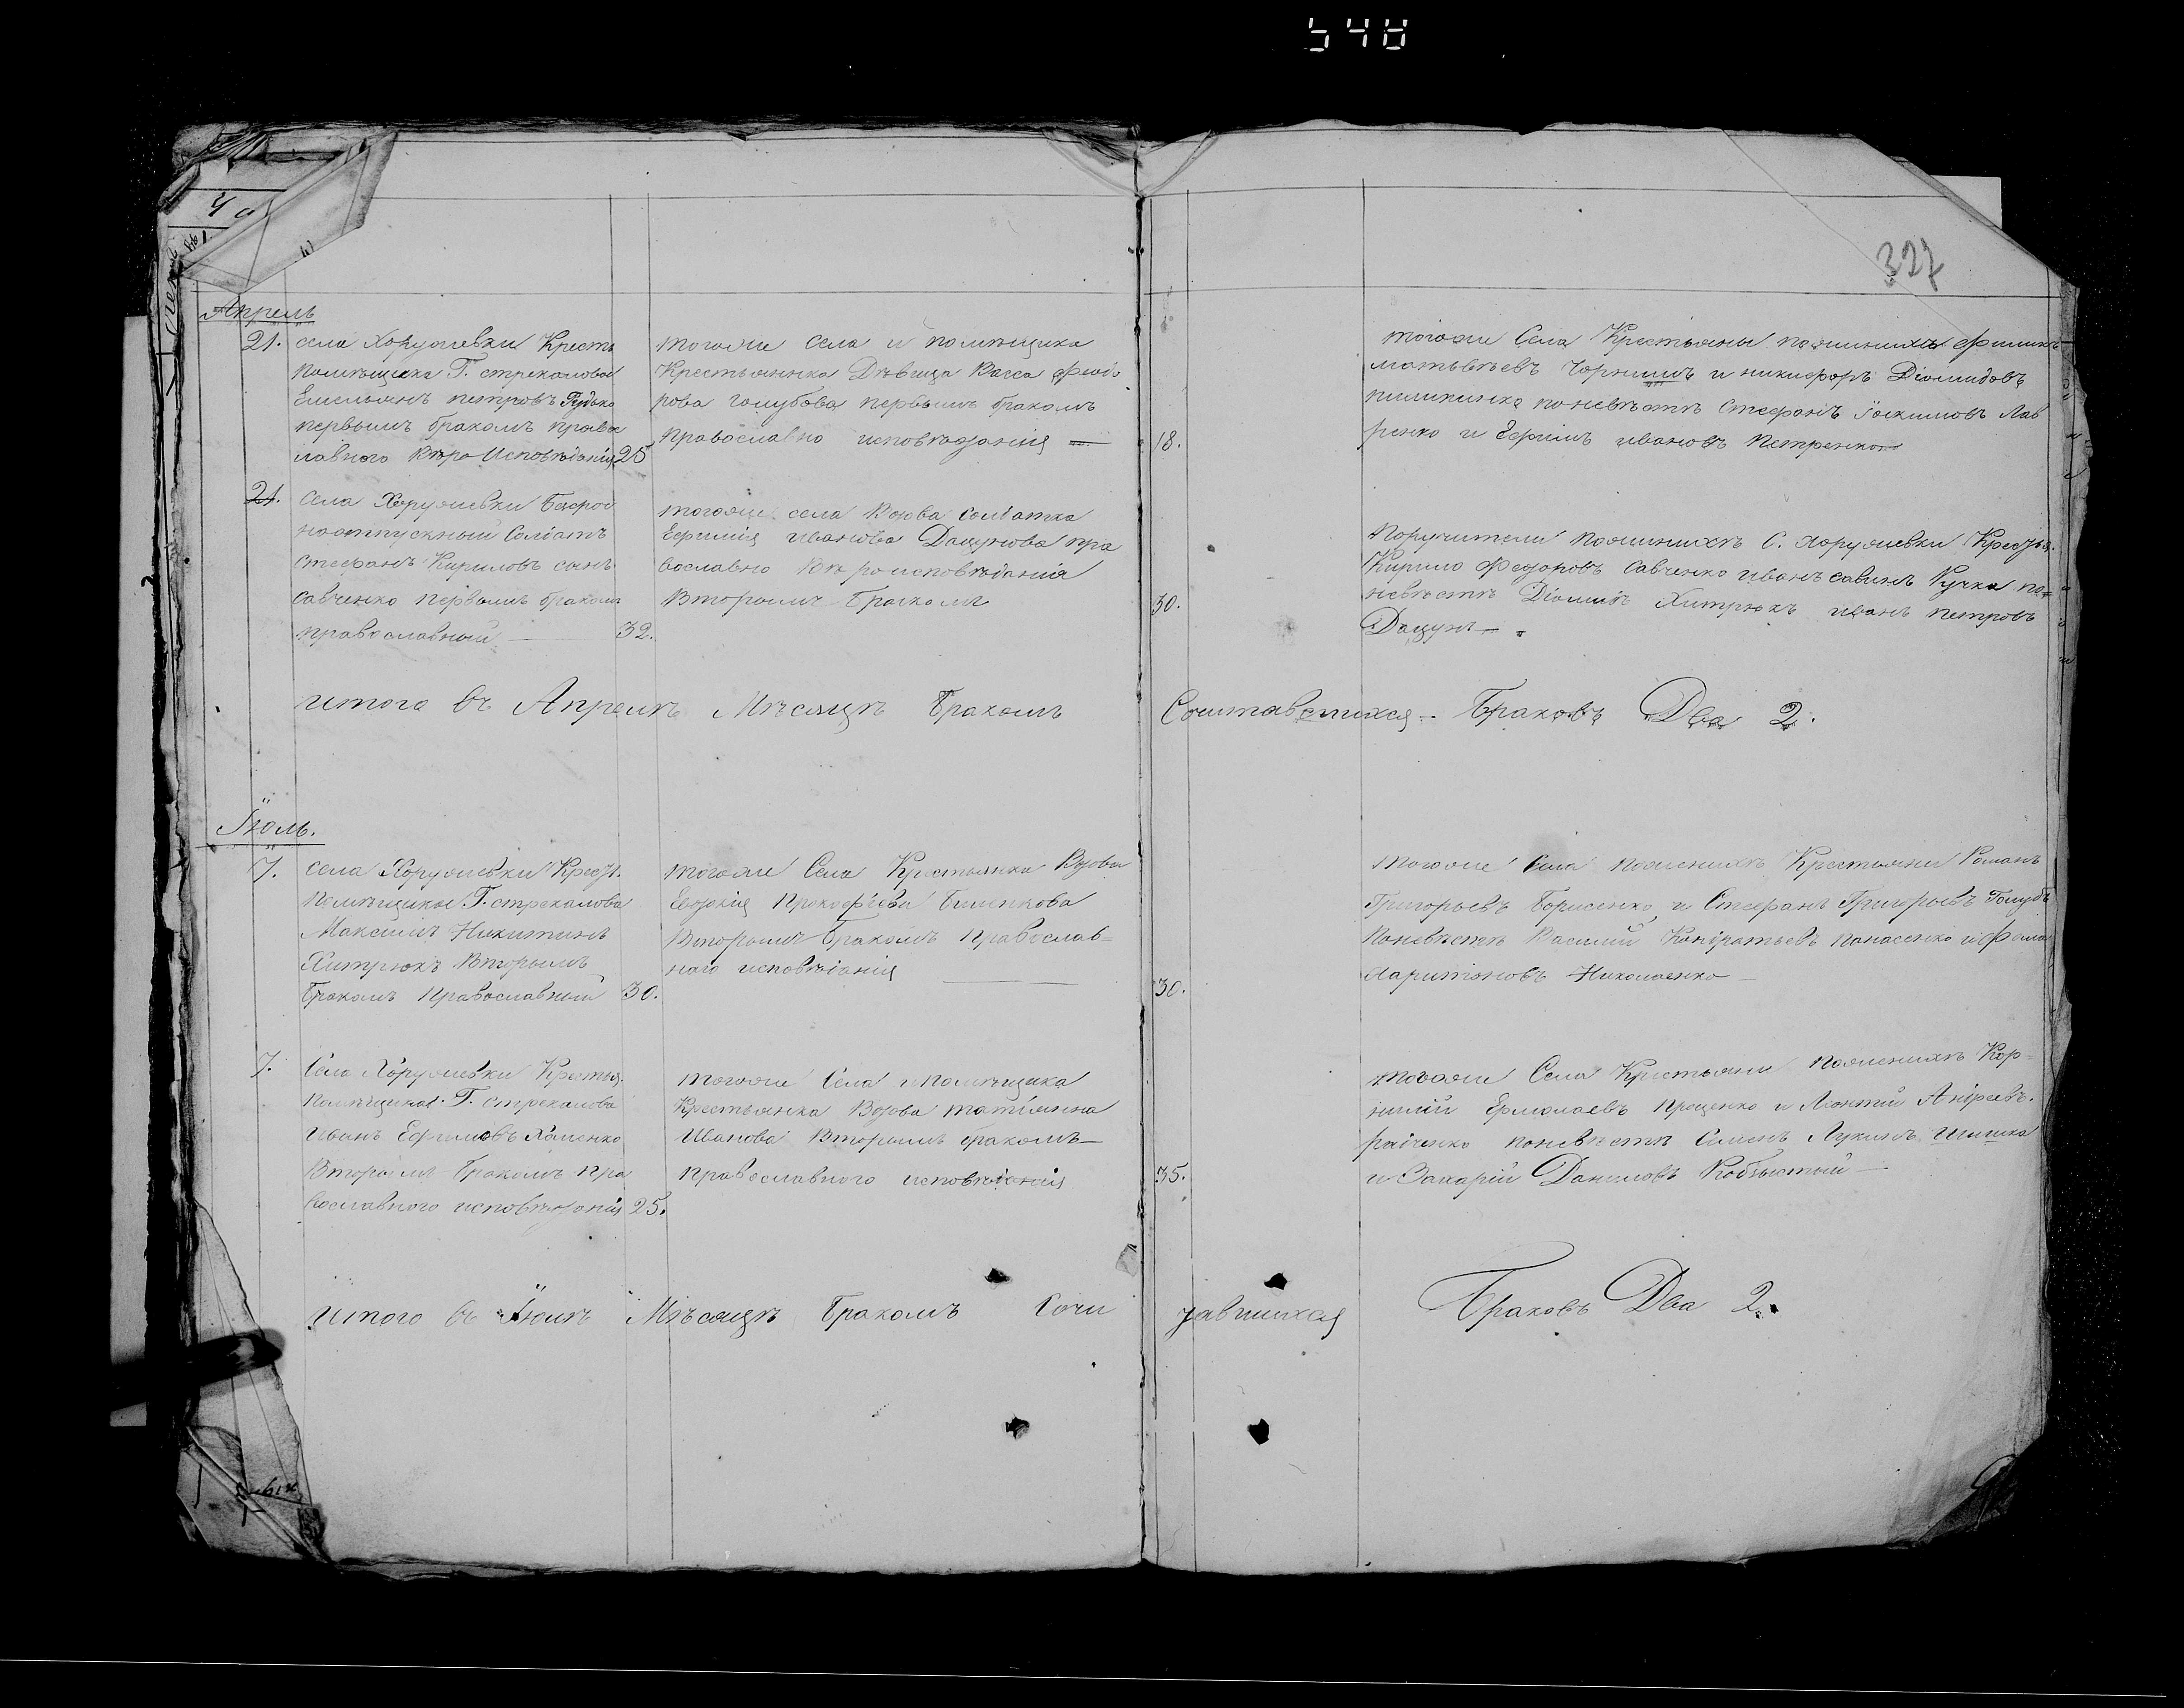 548
327
Апрель
21. села Хоружевки Кресть
помѣщика Г. стрекалова
Емельянъ петровъ Гудько
первымъ бракомъ право
лавного Вѣро Исповѣданія 25
тогоже села и помѣщика
Крестьянка Дѣвица Васса Феодо
рова голубова первымъ бракомъ
православно исповѣданія —
18.
тогоже Села Крестьяны пожинихъ Филипъ
матьвѣевъ Чорнишъ и никифоръ Діомидовъ
пилипинко поневѣстѣ Стефанъ Іоакимовъ Лав
ренко и Ефимъ ивановъ Петренко
21. Села Хоружевки Безсроч
ноотпускный Солдатъ
Стефанъ Кириловъ сынъ
Савченко первымъ бракомъ
православный — 32.
тогоже села Вдова солдатка
Ефимія иванова Дацунова пра
вославно Вѣроисповѣданія
Вторымъ бракомъ
30.
Поручители пожинихъ С. Хоружевки Крестья.
Кирило Федоровъ Савченко иванъ савинъ Ручка по=
невѣстѣ Діомидъ Хитрюкъ иванъ петровъ
Дацун —
итого въ Апрелѣ Мѣсяцѣ Бракомъ Сочитавшихся — Браковъ Два 2.
Іюль.
7. села Хоружевки Крест.
Помѣщика Г. стрекалова
Максимъ Никитинъ
Хитрюкъ Вторымъ
бракомъ Православный 30.
тогоже Села Крестьянка Вдова
Евдокія Прокофіева
Вторымъ бракомъ Православ=
ного исповѣданія
30.
тогоже Села пожинихъ Крестьяни Романъ
Григорьевъ Борисенко и Стефанъ Григорьевъ Голубъ
поневѣстѣ Василий Кондратьевъ Панасенко и Фома
Харитоновъ Николаенко —
7. Села Хоружевки Крестья.
Помѣщика Г. стрекалова
Иванъ Ефимовъ Хоменко
Вторымъ бракомъ пра
вославного исповѣданія 25.
тогоже Села и помѣщика
Крестьянка Вдова татіянна
Иванова Вторымъ бракомъ —
православного исповѣданія
35.
тогоже Села Крестьяни пожинихъ Кор=
нилій Ермолаевъ Проценко и Леонтий Андреевъ.
поневѣстѣ Симонъ Лукинъ Шишка
и Захарій Даниловъ Кобзистий —
итого въ Іюлѣ Мѣсяцѣ Бракомъ Сочи тавшихся Браковъ Два 2.